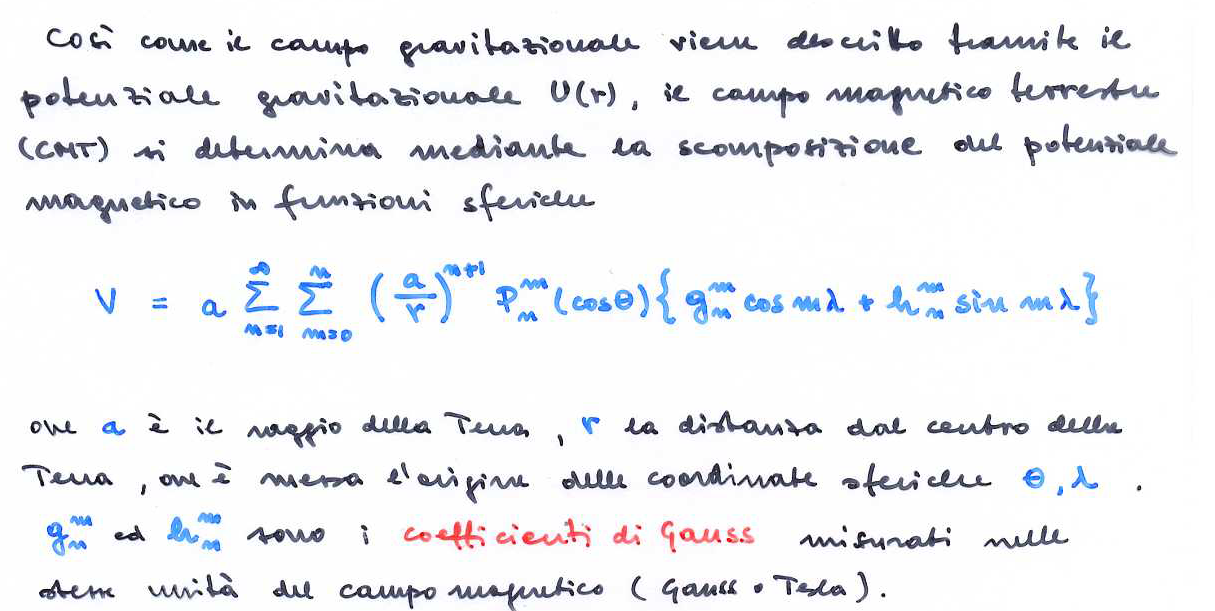 Così come il campo gravitazionale viene descritto tramite il
potenziale gravitazionale U(r), il campo magnetico terrestre
(CMT) si determina mediante la scomposizione del potenziale
magnetico in funzioni sferiche
V = a ∑_{n=1}^{∞} ∑_{m=0}^{n} (a/r)^{n+1} P_n^m (cosθ) { g_n^m cos mλ + h_n^m sin mλ }
ove a è il raggio della Terra, r la distanza dal centro della
Terra, ove è messa l'origine delle coordinate sferiche θ, λ.
g_n^m ed h_n^m sono i coefficienti di Gauss misurati nelle
stesse unità del campo magnetico (Gauss o Tesla).